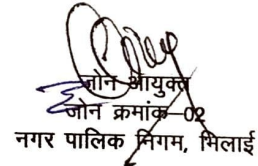 जोन आयुक्त
जोन क्रमांक-02
नगर पालिक निगम, भिलाई